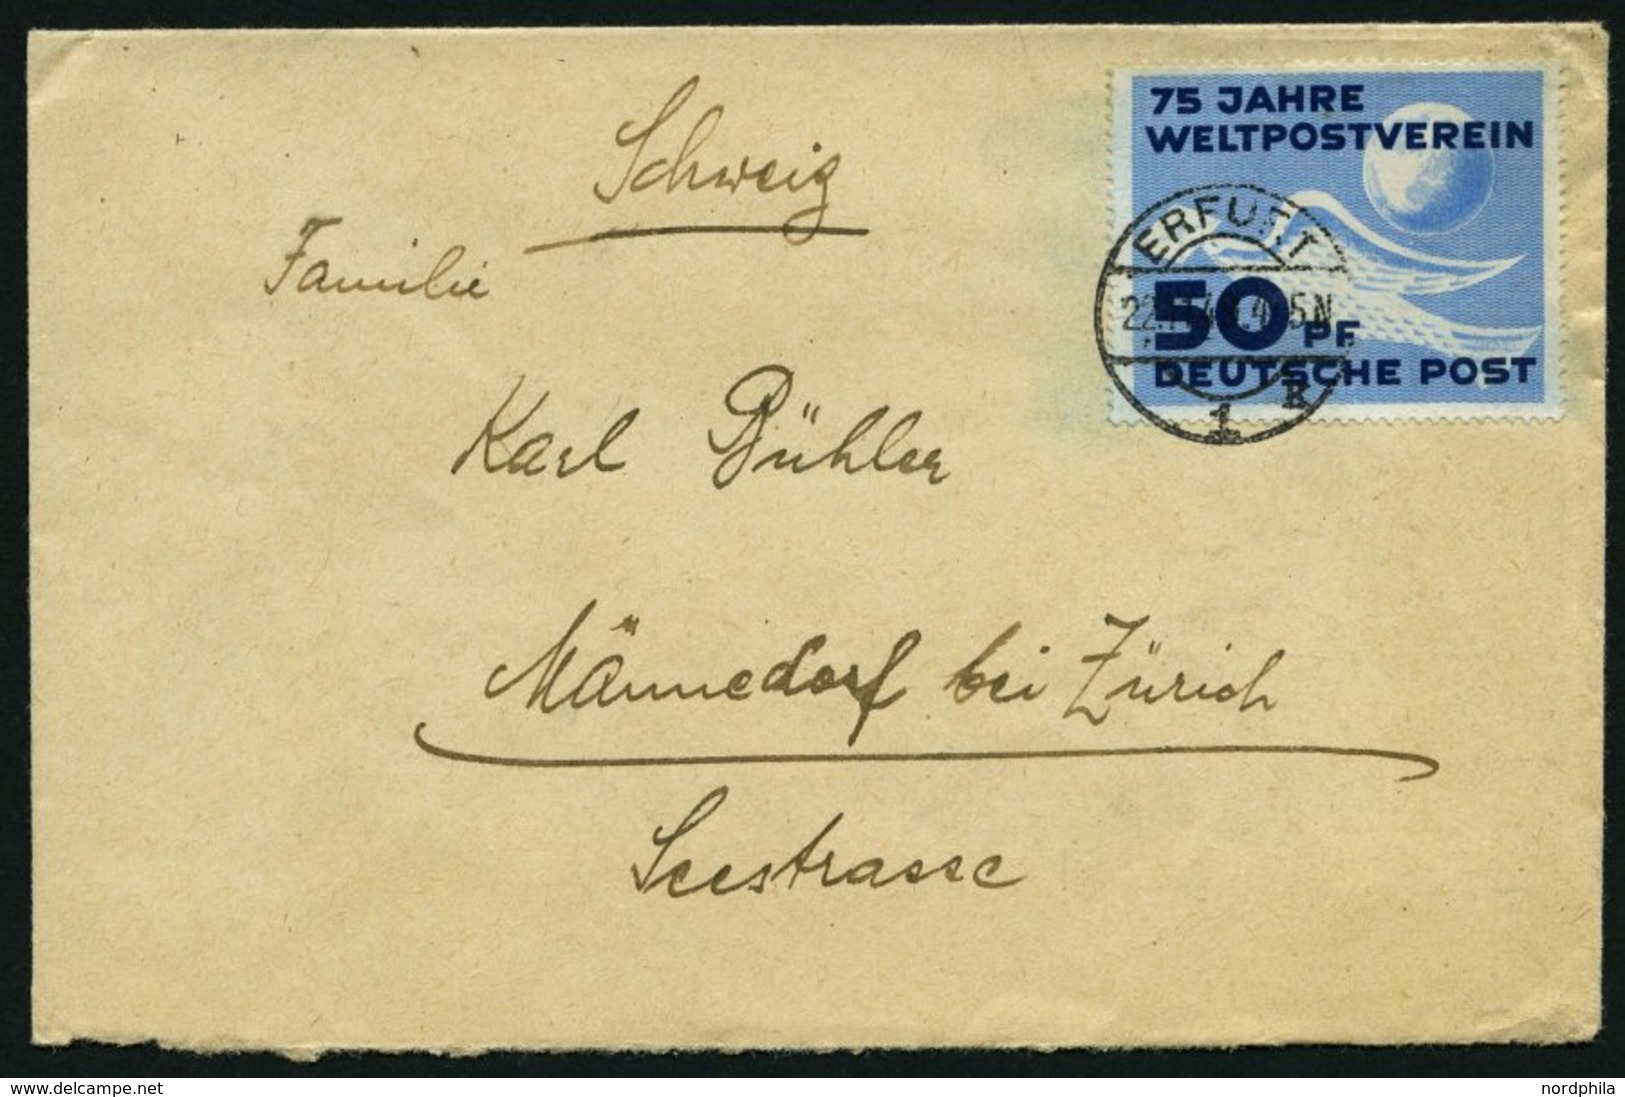 Schweiz
Familie
Karl Bühler
Männedorf bei Zürich
Seestrasse
75 JAHRE
WELTPOSTVEREIN
50 PF
DEUTSCHE POST
ERFURT
1
delcampe.net
nordphila